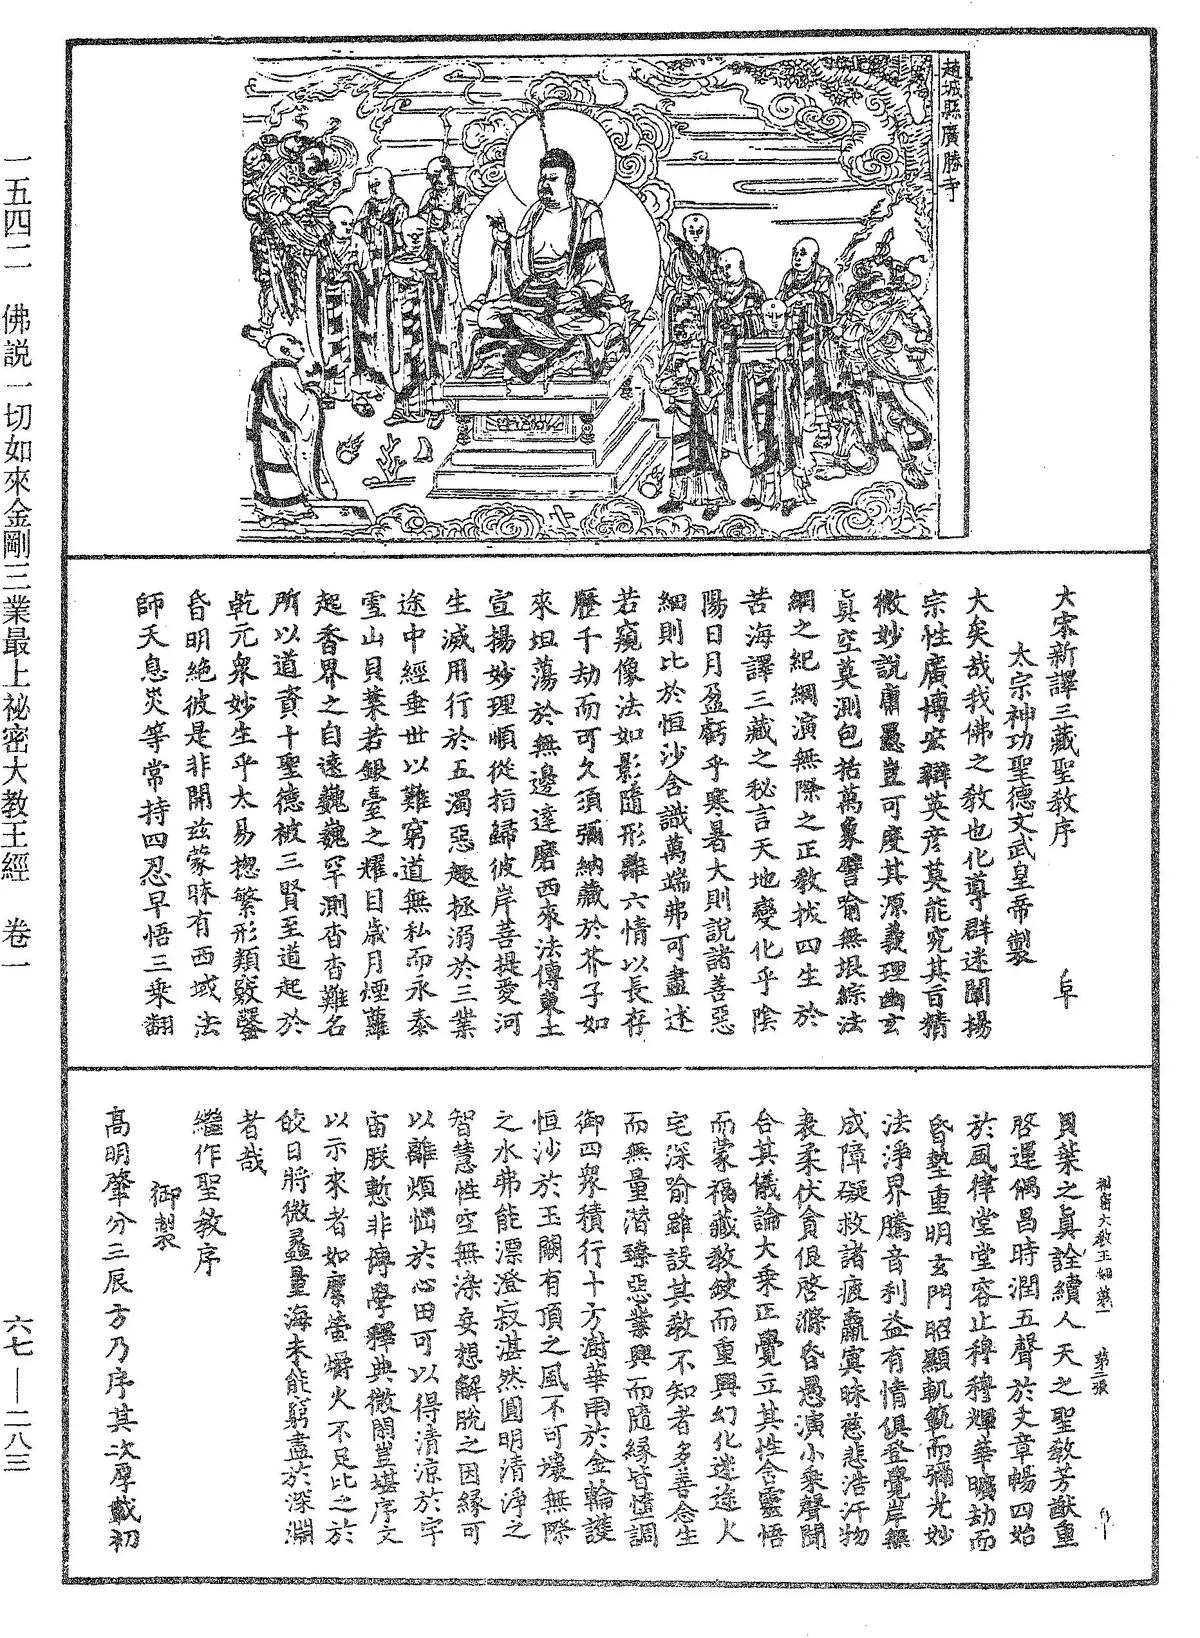 趙城縣廣勝寺
大宋新譯三藏聖教序
太宗神功聖德文武皇帝製
大矣哉我佛之教也化導群迷闡揚
宗性廣博宏辯英彦莫能究其百精
微妙說庸愚豈可度其源義理幽玄
真空莫測包括萬象譬喻無垠綜法
網之紀綱演無際之正教拔四生於
苦海譯三藏之秘言天地變化乎陰
陽日月盈虧乎寒暑大則說諸善惡
細則比於恒沙含識萬端弗可盡述
若窺像法如影隨形離六情以長存
歷千劫而可久須彌納藏於芥子如
來坦蕩於無邊達磨西來法傳東土
宣揚妙理順從指歸彼岸菩提愛河
生滅用行於五濁惡趣拯溺於三業
途中經垂世以難窮道無私而永泰
雪山貝葉若銀臺之耀日歲月煙蘿
起香界之自遠巍巍罕測杳杳難名
所以道資十聖德被三賢至道起於
乾元衆妙生乎太易揔繁形類竅鑿
昏明絕彼是非開茲蒙昧有西域法
師天息災等常持四忍早悟三乘翻
貝葉之真詮續人天之聖教芳猷重
啓運偶昌時潤五聲於文章暢四始
於風律堂堂容止穆穆輝華曠劫而
昏墊重明玄門昭顯軌範而彌光妙
法淨界騰音利益有情俱登覺岸無
成障礙救諸疲羸寘昧慈悲浩汗物
表柔伏貪很啓滌昏愚演小乘聲聞
合其儀論大乘正覺立其性含靈悟
而蒙福藏教缺而重興幻化迷途火
宅深喻雖設其教不知者多善念生
而無量潛臻惡業興而隨緣皆墮調
御四衆積行十方澍華雨於金輪護
恒沙於玉闕有頂之風不可壞無際
之水弗能漂澄寂湛然圓明清淨之
智慧性空無染妄想解脫之因緣可
以離煩惱於心田可以得清涼於宇
宙朕慙非博學釋典微閑豈堪序文
以示來者如縻螢爝火不足比之於
皎日將微蠡量海未能窮盡於深淵
者哉
繼作聖教序
御製
高明肇分三辰方乃序其次厚載初
第二張
一五四二　佛說一切如來金剛三業最上祕密大教王經　卷一
六七—二八三